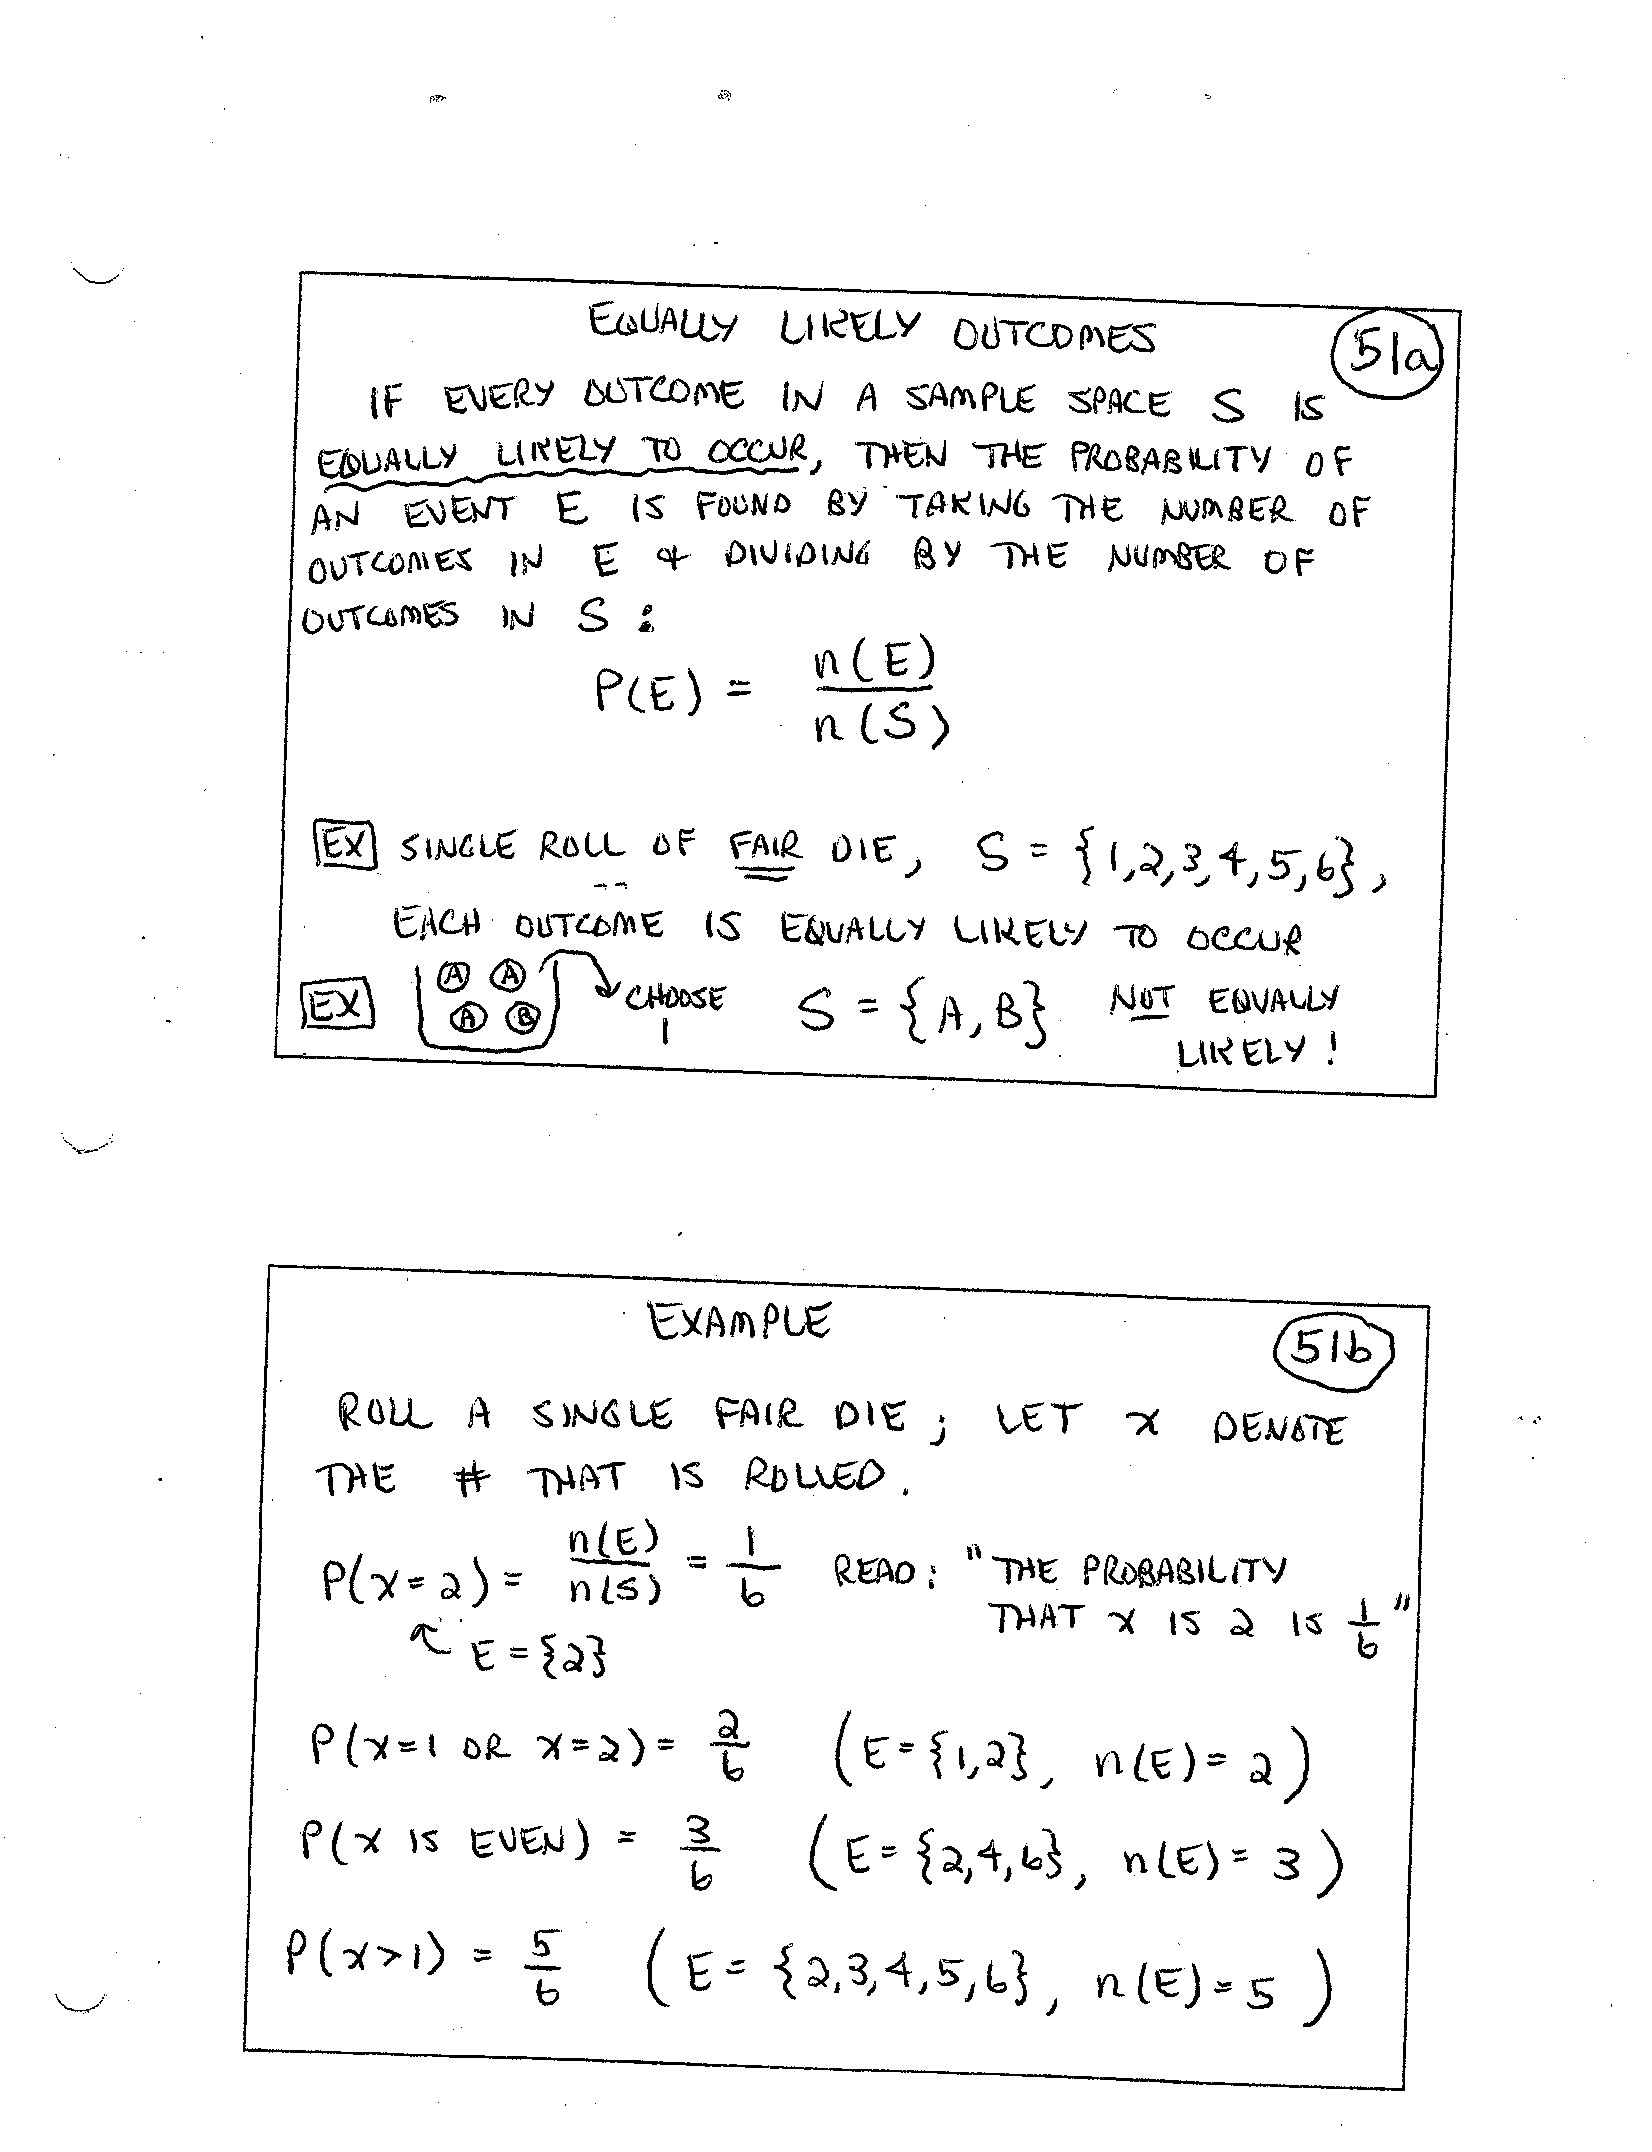 EQUALLY LIKELY OUTCOMES
51a
IF EVERY OUTCOME IN A SAMPLE SPACE S IS
EQUALLY LIKELY TO OCCUR, THEN THE PROBABILITY OF
AN EVENT E IS FOUND BY TAKING THE NUMBER OF
OUTCOMES IN E & DIVIDING BY THE NUMBER OF
OUTCOMES IN S :
P(E) = n(E) / n(S)
EX SINGLE ROLL OF FAIR DIE, S = {1,2,3,4,5,6},
EACH OUTCOME IS EQUALLY LIKELY TO OCCUR
EX A A A B CHOOSE 1 S = {A, B} NOT EQUALLY
LIKELY !
EXAMPLE
51b
ROLL A SINGLE FAIR DIE ; LET x DENOTE
THE # THAT IS ROLLED.
P(x=2) = n(E) / n(S) = 1/6 READ: "THE PROBABILITY
THAT x IS 2 IS 1/6"
E = {2}
P(x=1 OR x=2) = 2/6 (E={1,2}, n(E)=2)
P(x IS EVEN) = 3/6 (E={2,4,6}, n(E)=3)
P(x>1) = 5/6 (E={2,3,4,5,6}, n(E)=5)